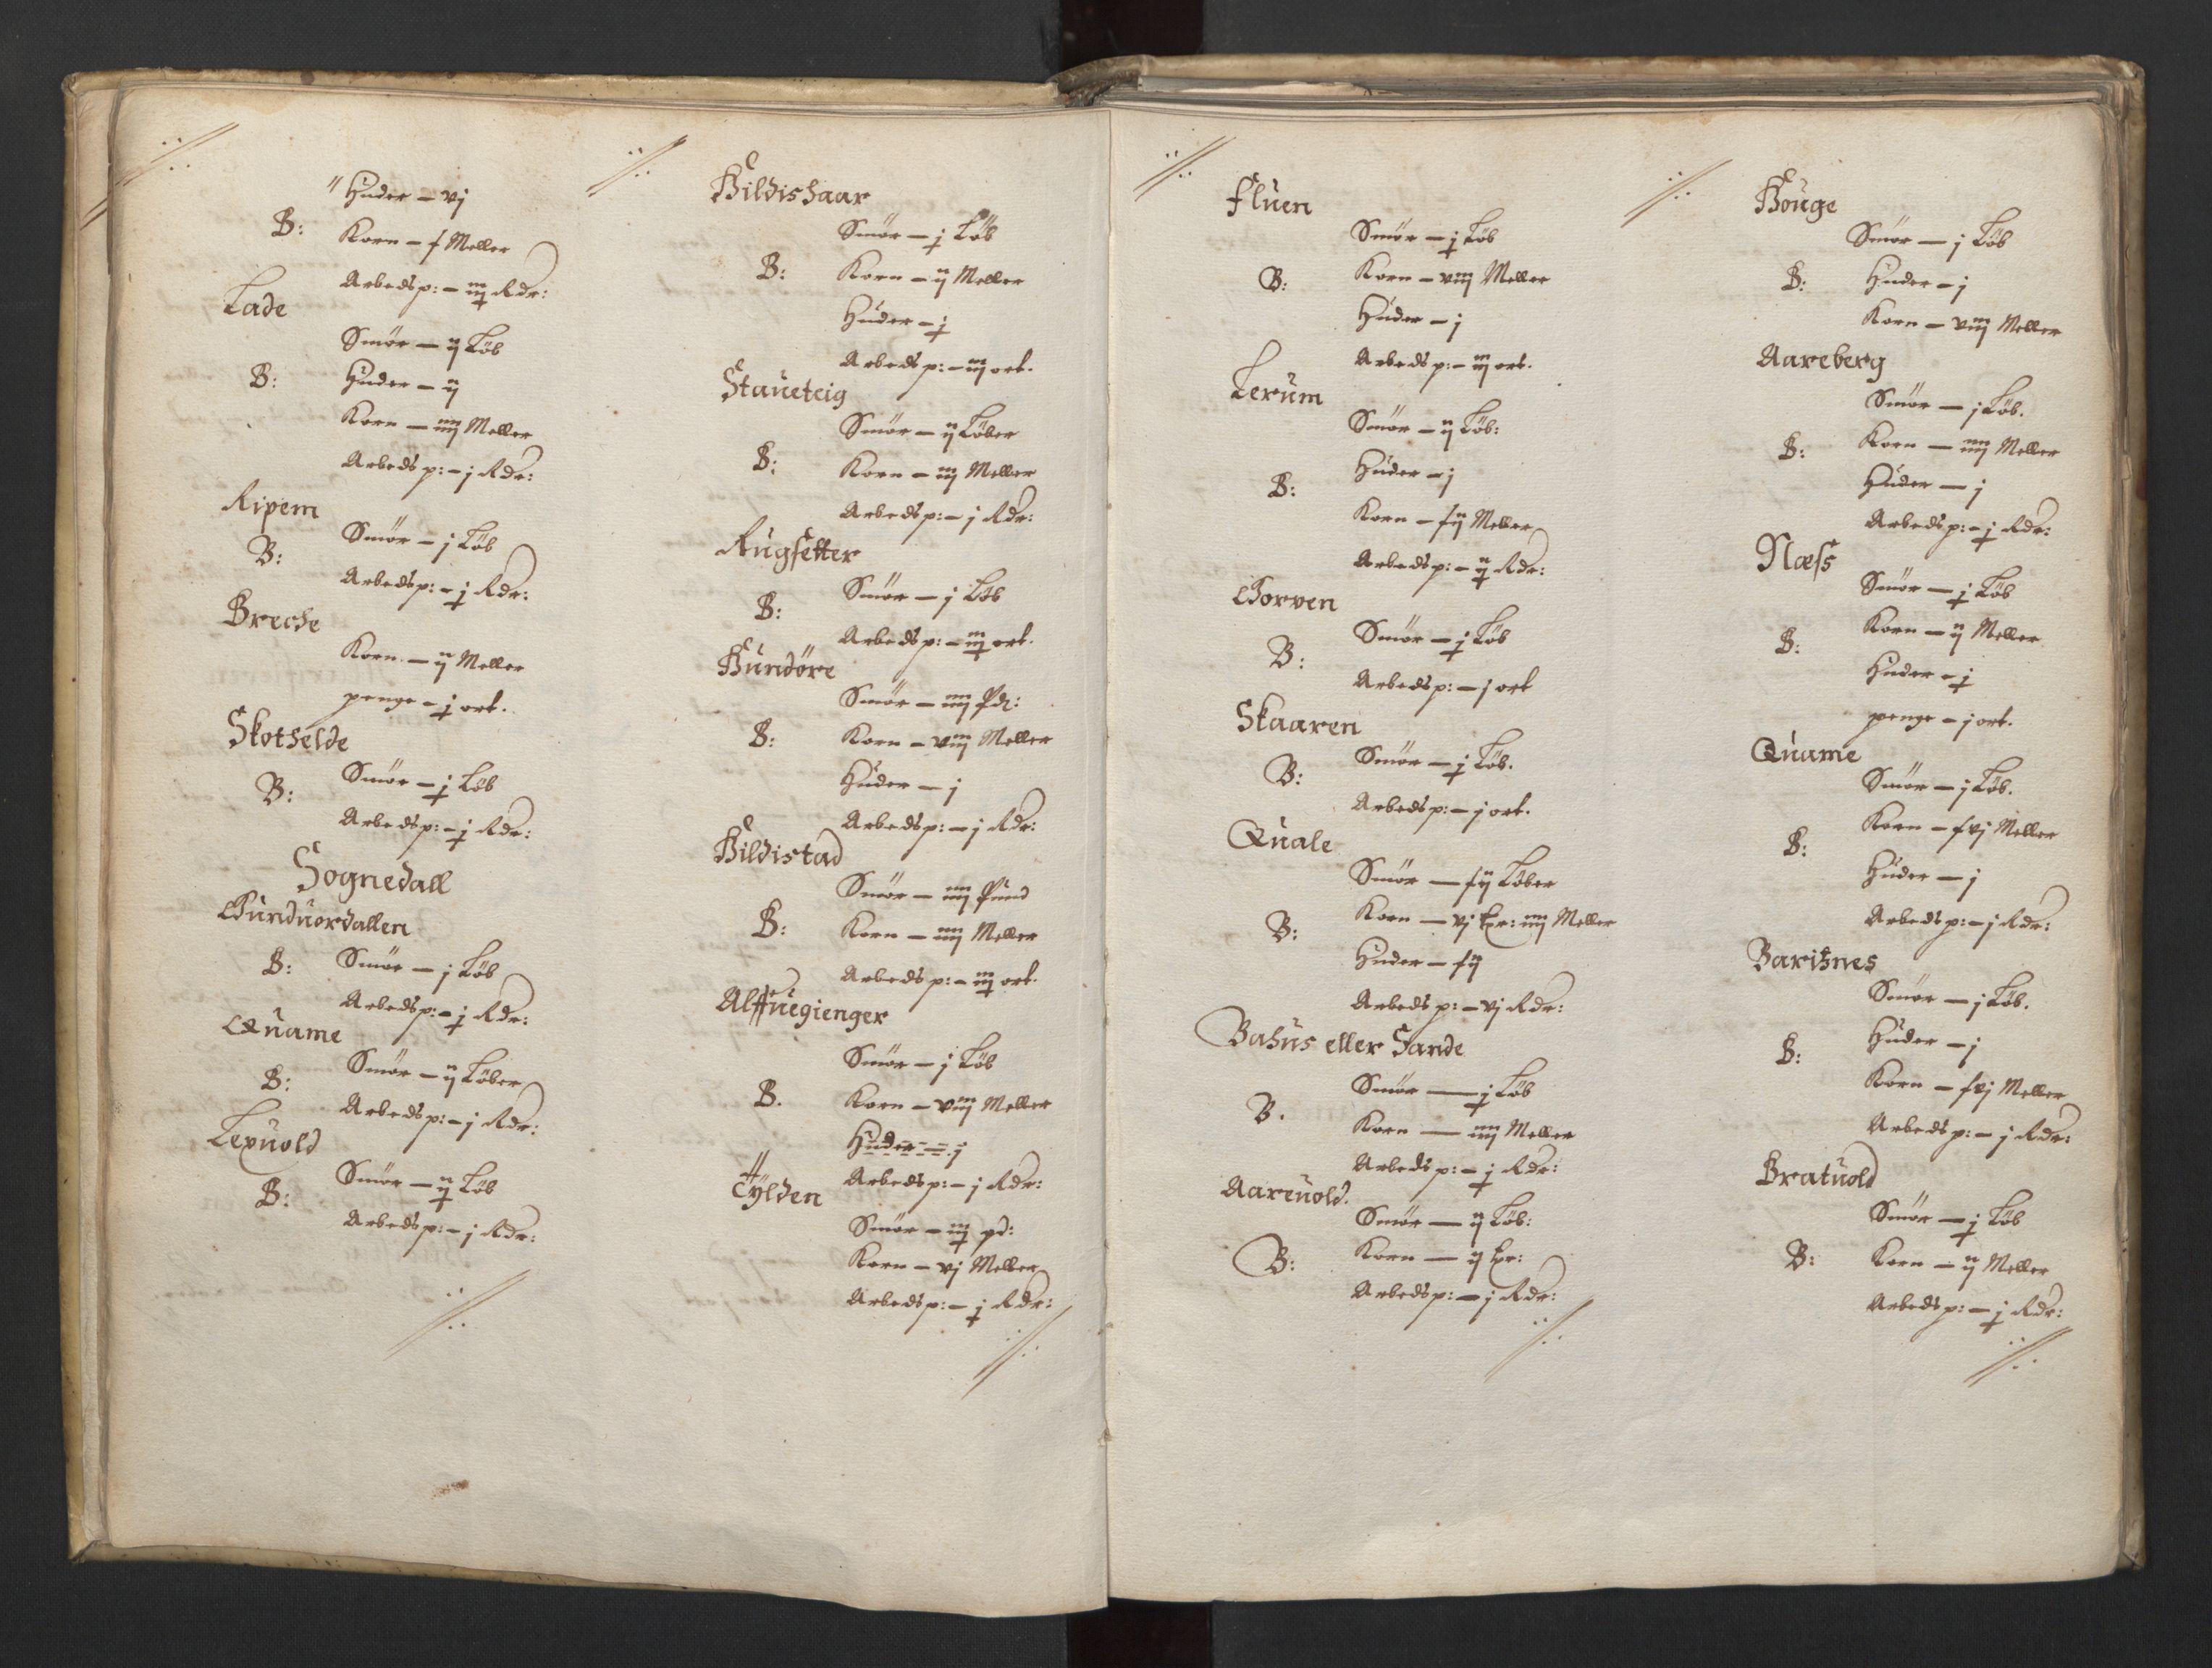 Huder – vj
B: Korn – x Meller
Arbeds p: – iij Rdr:
Lade
Smör – ij Löb
B: Huder – ij
Korn – iiij Meller
Arbeds p: – j Rdr:
Ripem
Smör – j Löb
B:
Arbeds p: – j Rdr:
Breche
Korn – ij Meller
penge – j ort.
Skothelde
Smör – j Löb
B:
Arbeds p: – j Rdr:
Sognedall
Gunduordallen
B: Smör – j Löb
Arbeds p: – j Rdr:
Quame
Smör – ij Löber
B:
Arbeds p: – j Rdr:
Lexuold
Smör – ij Löb
B:
Arbeds p: – j Rdr:
Hildishaar
Smör – j Löb
B: Korn – ij Meller
Huder – j
Arbeds p: – iij ort.
Staueteig
Smör – ij Löber
B: Korn – iij Meller
Arbeds p: – j Rdr:
Rugsetter
Smör – j Löb
B:
Arbeds p: – iij ort.
Hundöre
Smör – iiij Pd:
B: Korn – viij Meller
Huder – j
Arbeds p: – j Rdr:
Hildistad
Smör – iiij Pund
B: Korn – iiij Meller
Arbeds p: – iij ort.
Alffuegienger
Smör – j Löb
B. Korn – viij Meller
Huder – j
Arbeds p: – j Rdr:
Tylden
Smör – iij pd:
Korn – vj Meller
Arbeds p: – j Rdr:
Fluen
Smör – j Löb
B: Korn – viij Meller
Huder – j
Arbeds p: – iij ort.
Lerum
Smör – ij Löb:
Huder – j
B:
Korn – xij Meller
Arbeds p: – ij Rdr:
Gorven
Smör – j Löb
B:
Arbeds p: – j ort
Skaaren
Smör – j Löb.
B:
Arbeds p: – j ort.
Quale
Smör – xij Löber
B: Korn – vj tr: iiij Meller
Huder – xij
Arbeds p: – vj Rdr:
Bahus eller Sande
Smör – j Löb
B. Korn – iiij Meller
Arbeds p: – j Rdr:
Aareuold.
Smör – ij Löb:
B: Korn – ij tr:
Arbeds p: – j Rdr:
Houge
Smör – j Löb
B: Huder – j
Korn – viij Meller
Aareberg
Smör – j Löb.
B: Korn – iiij Meller
Huder – j
Arbeds p: – j Rdr:
Næss
Smör – j Löb
B: Korn – ij Meller
Huder – j
penge – j ort.
Quame
Smör – j Löb.
B: Korn – xvj Meller
Huder – j
Arbeds p: – j Rdr:
Baritznes
Smör – j Löb.
B: Huder – j
Korn – xvj Meller
Arbeds p: – j Rdr:
Bratuold
Smör – j Löb
B: Korn – ij Meller
Arbeds p: – j Rdr: